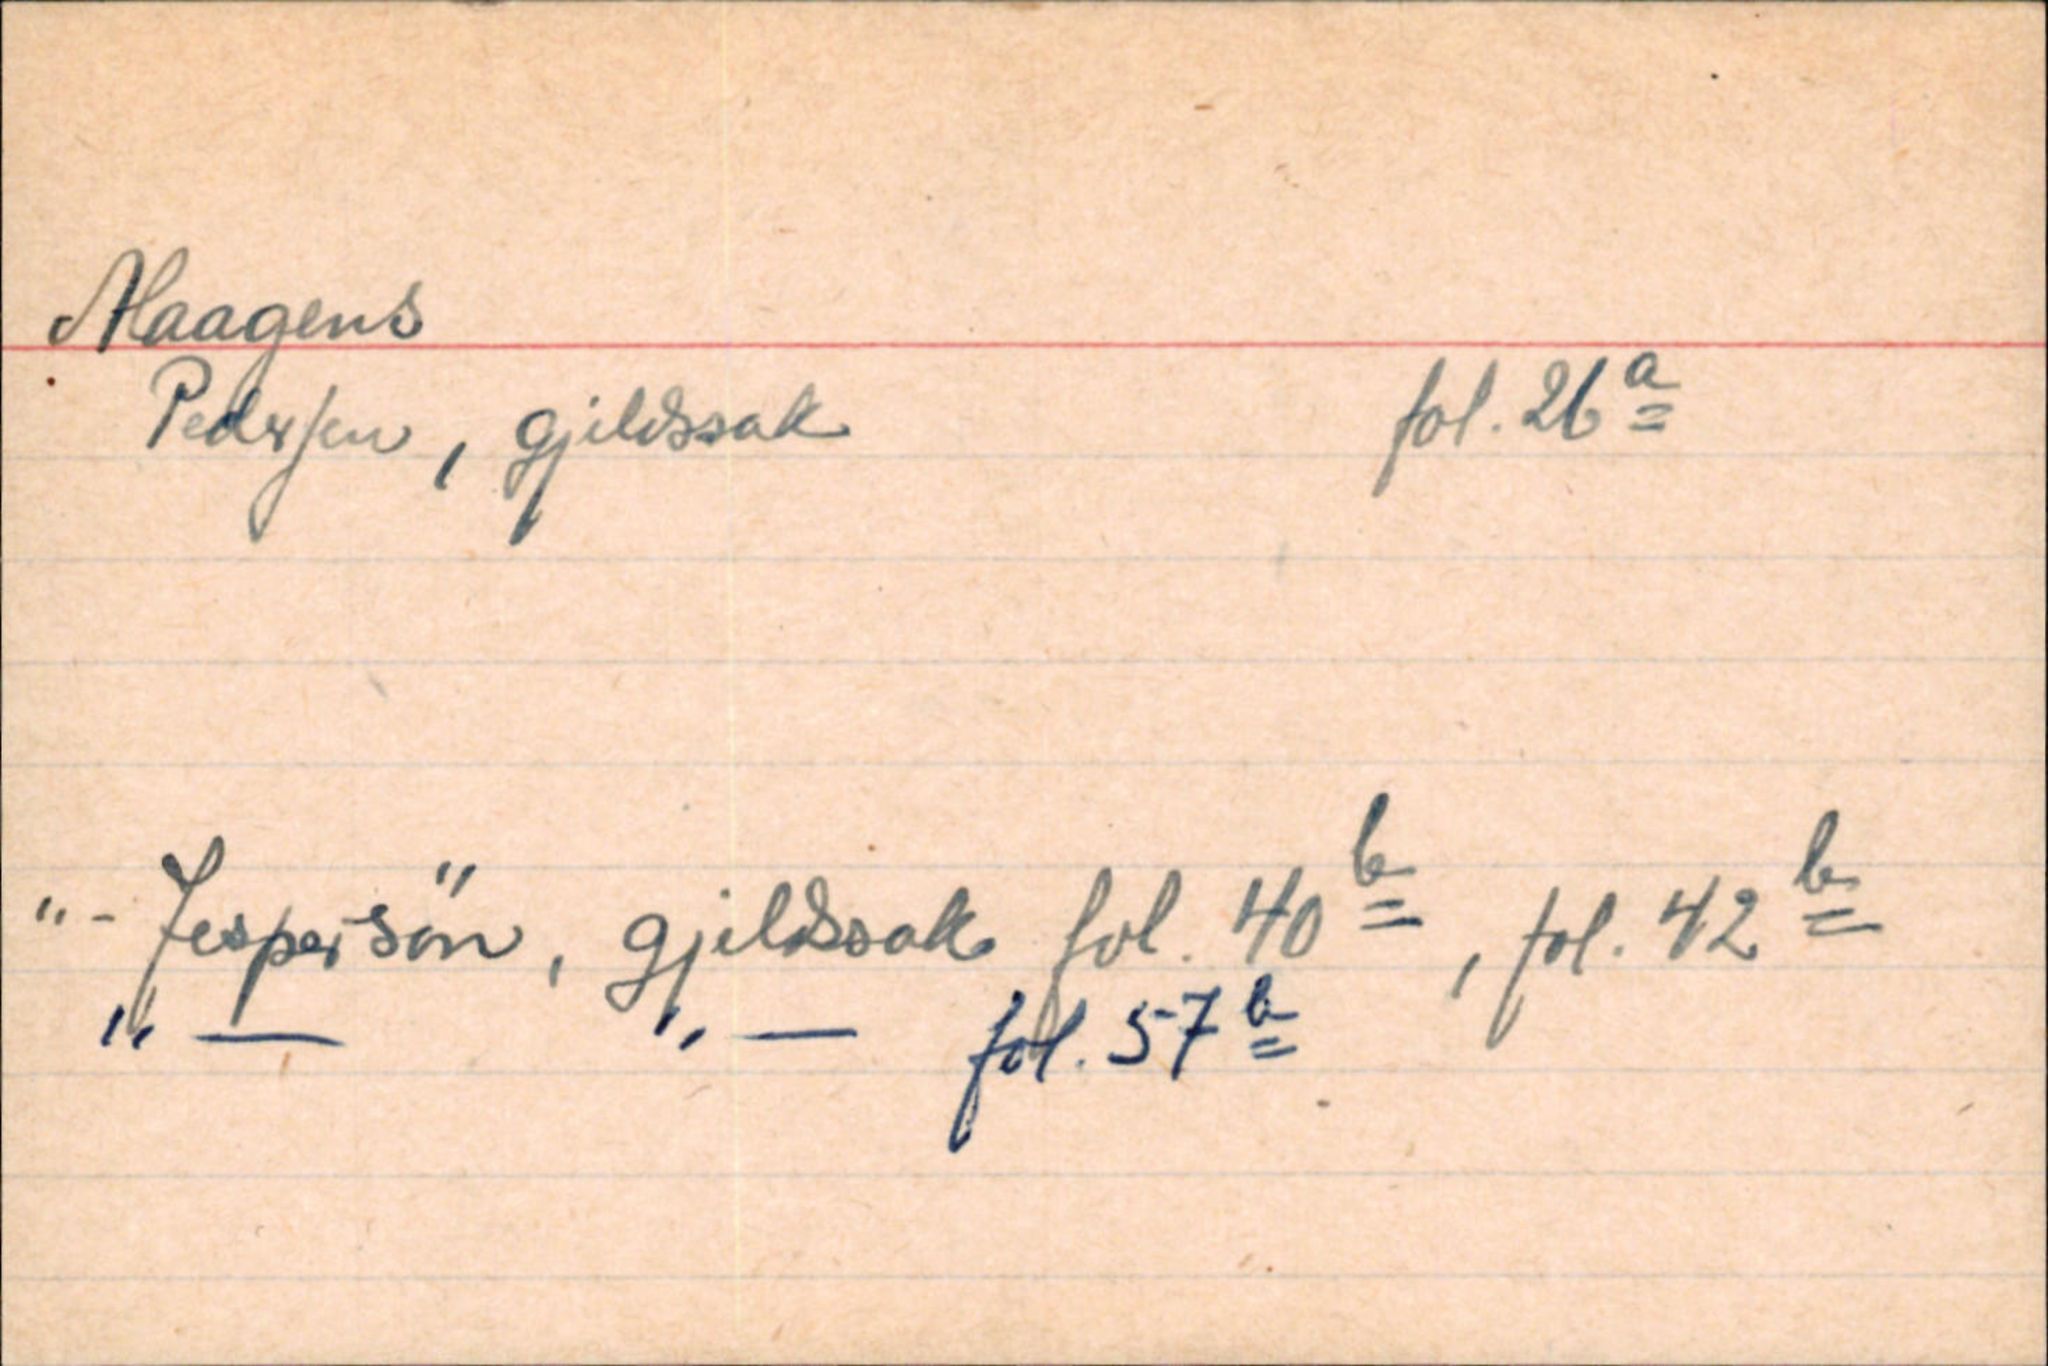 Maagens
Pedersen, gjeldssak fol. 26a
"- Jespersön, gjeldssak fol. 40b, fol. 42b
" — " — fol. 57b